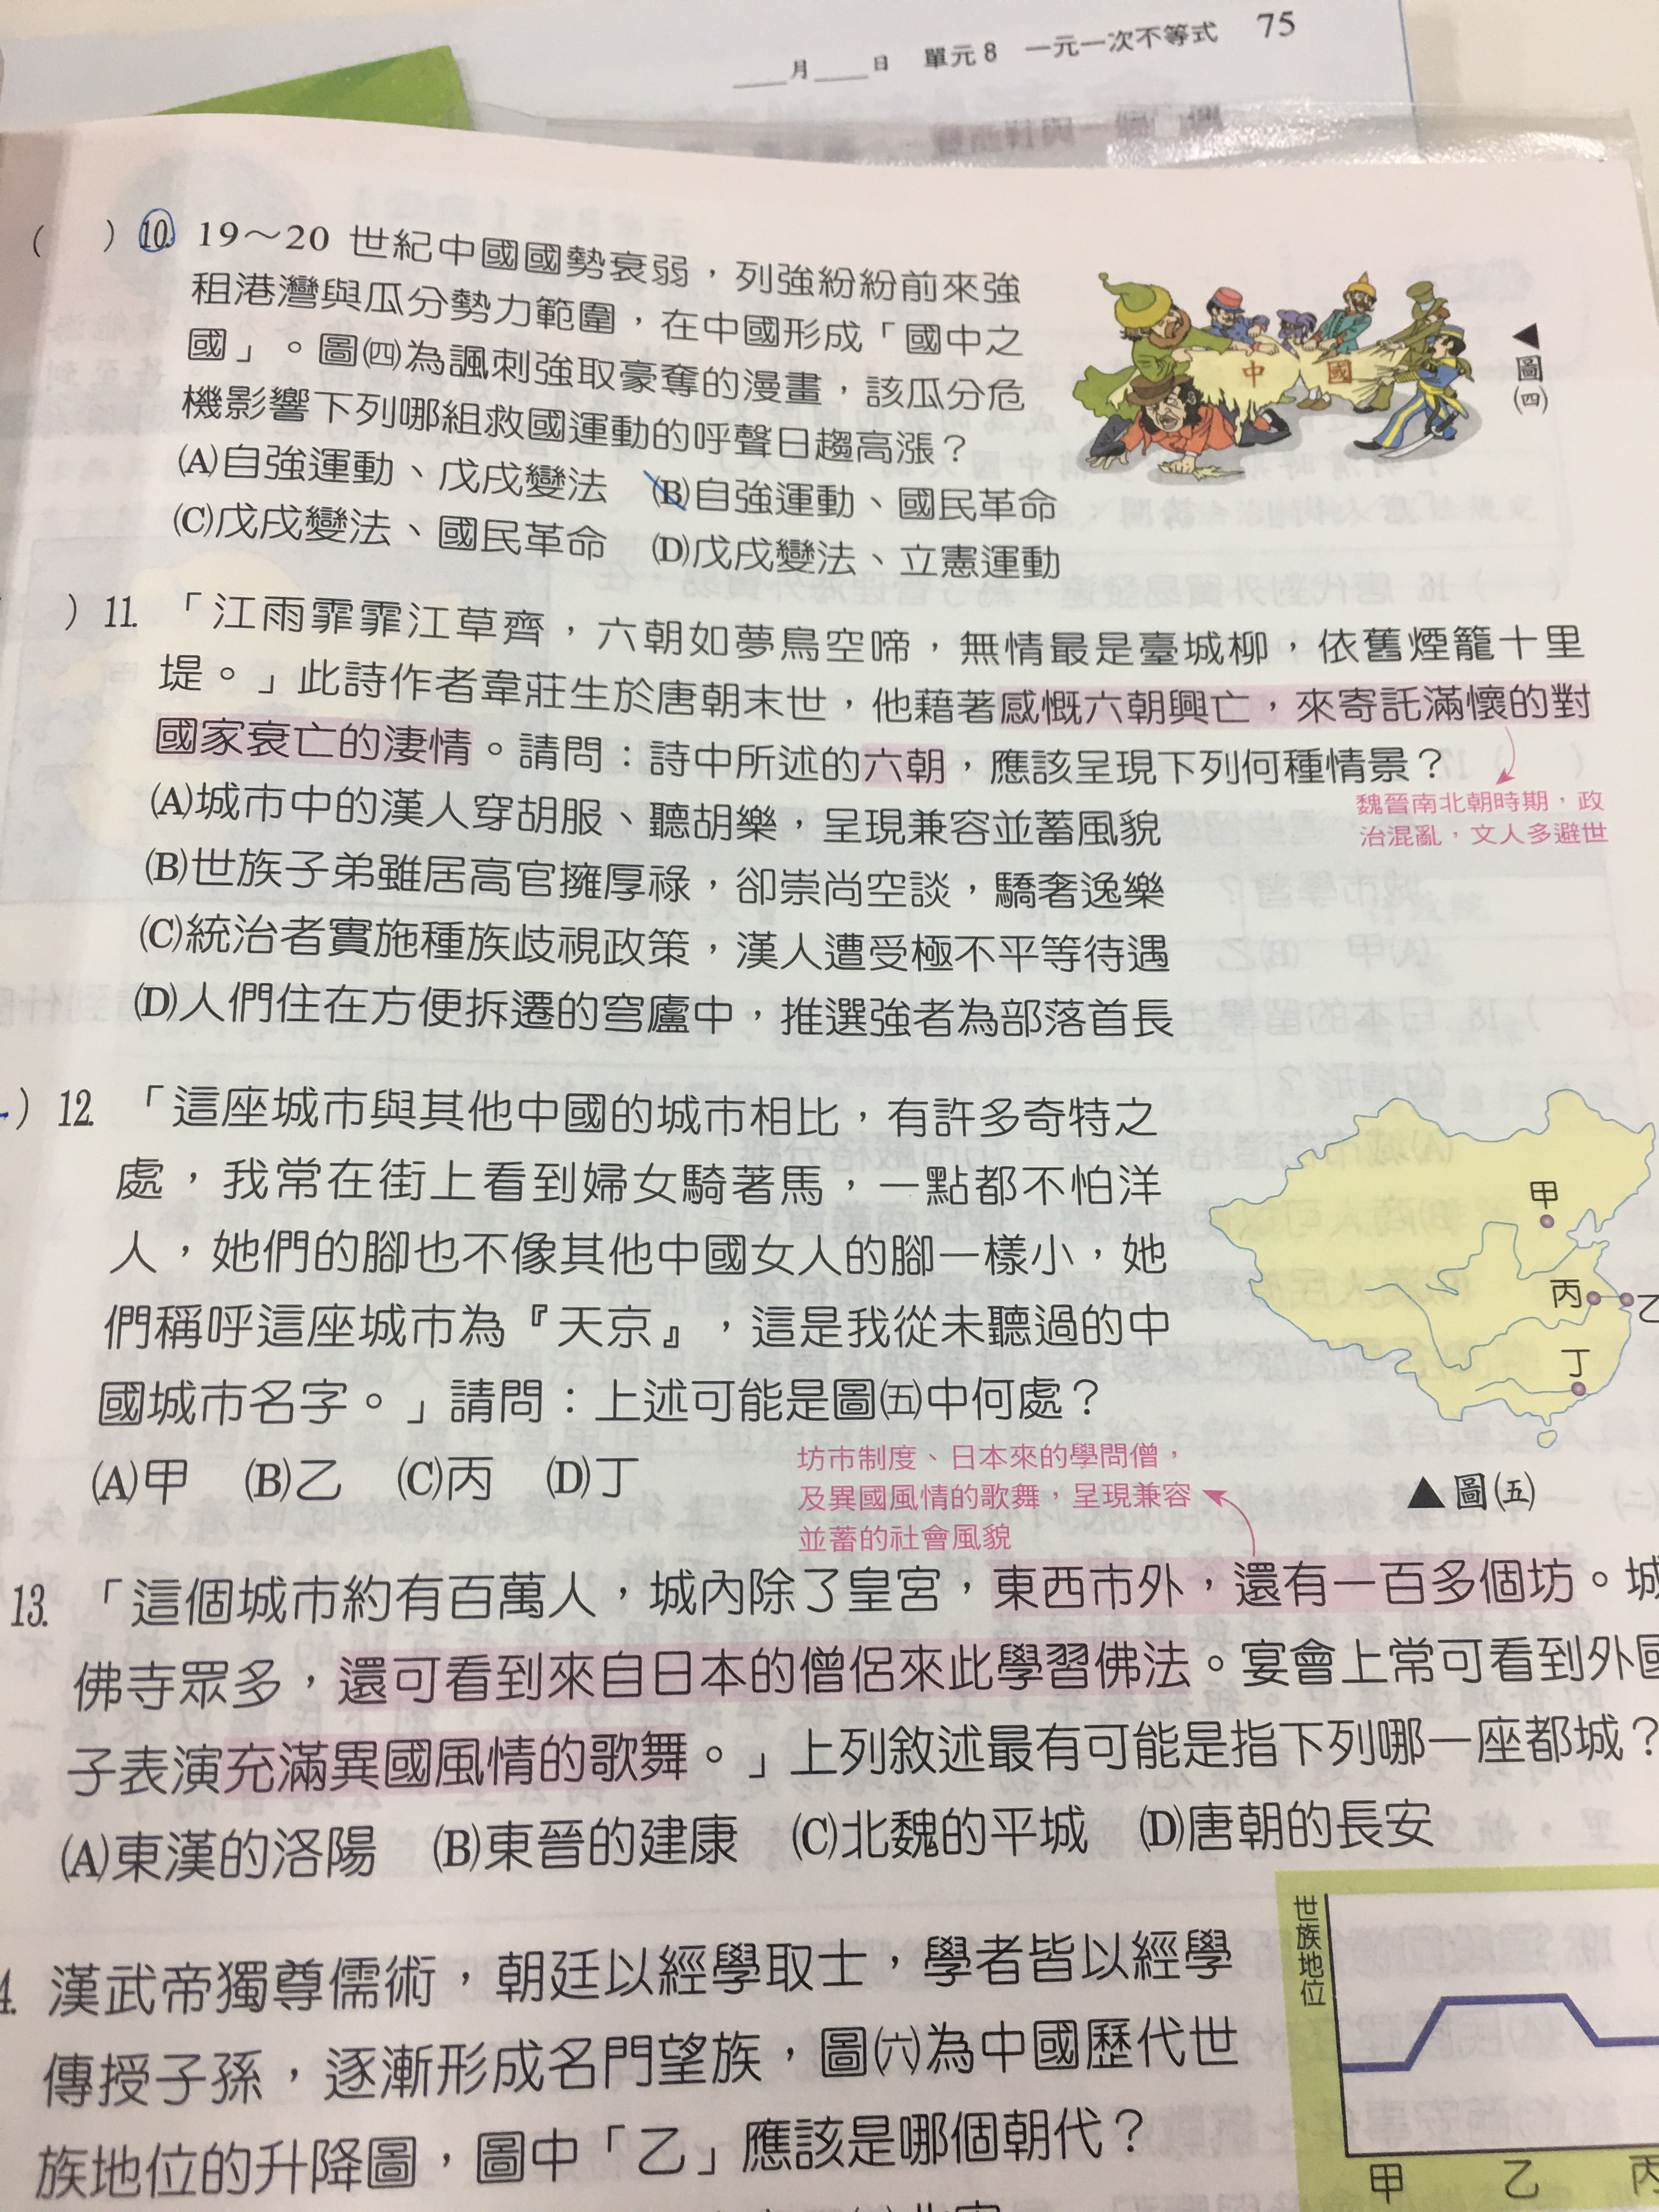 ____月____日　單元8　一元一次不等式　75
(　　) 10. 19～20 世紀中國國勢衰弱，列強紛紛前來強
租港灣與瓜分勢力範圍，在中國形成「國中之
國」。圖㈣為諷刺強取豪奪的漫畫，該瓜分危
機影響下列哪組救國運動的呼聲日趨高漲？
(A)自強運動、戊戌變法　(B)自強運動、國民革命
(C)戊戌變法、國民革命　(D)戊戌變法、立憲運動
中　國
◀圖㈣
) 11. 「江雨霏霏江草齊，六朝如夢鳥空啼，無情最是臺城柳，依舊煙籠十里
堤。」此詩作者韋莊生於唐朝末世，他藉著感慨六朝興亡，來寄託滿懷的對
國家衰亡的淒情。請問：詩中所述的六朝，應該呈現下列何種情景？
魏晉南北朝時期，政
治混亂，文人多避世
(A)城市中的漢人穿胡服、聽胡樂，呈現兼容並蓄風貌
(B)世族子弟雖居高官擁厚祿，卻崇尚空談，驕奢逸樂
(C)統治者實施種族歧視政策，漢人遭受極不平等待遇
(D)人們住在方便拆遷的穹廬中，推選強者為部落首長
) 12. 「這座城市與其他中國的城市相比，有許多奇特之
處，我常在街上看到婦女騎著馬，一點都不怕洋
人，她們的腳也不像其他中國女人的腳一樣小，她
們稱呼這座城市為『天京』，這是我從未聽過的中
國城市名字。」請問：上述可能是圖㈤中何處？
(A)甲　(B)乙　(C)丙　(D)丁
甲
丙　乙
丁
▲圖㈤
坊市制度、日本來的學問僧，
及異國風情的歌舞，呈現兼容
並蓄的社會風貌
13. 「這個城市約有百萬人，城內除了皇宮，東西市外，還有一百多個坊。城
佛寺眾多，還可看到來自日本的僧侶來此學習佛法。宴會上常可看到外國
子表演充滿異國風情的歌舞。」上列敘述最有可能是指下列哪一座都城？
(A)東漢的洛陽　(B)東晉的建康　(C)北魏的平城　(D)唐朝的長安
4. 漢武帝獨尊儒術，朝廷以經學取士，學者皆以經學
傳授子孫，逐漸形成名門望族，圖㈥為中國歷代世
族地位的升降圖，圖中「乙」應該是哪個朝代？
世族地位
甲　乙　丙